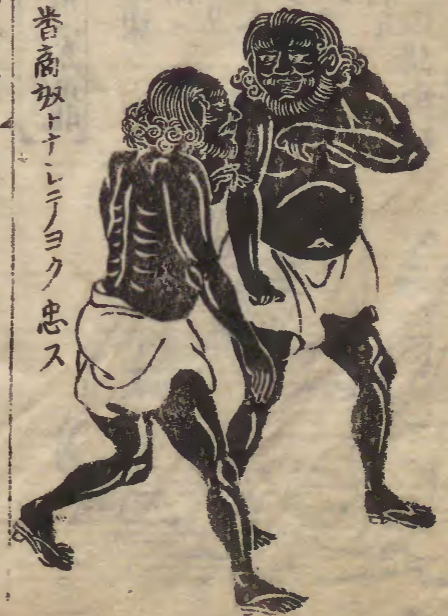 番商奴トナレテヨク忠ス